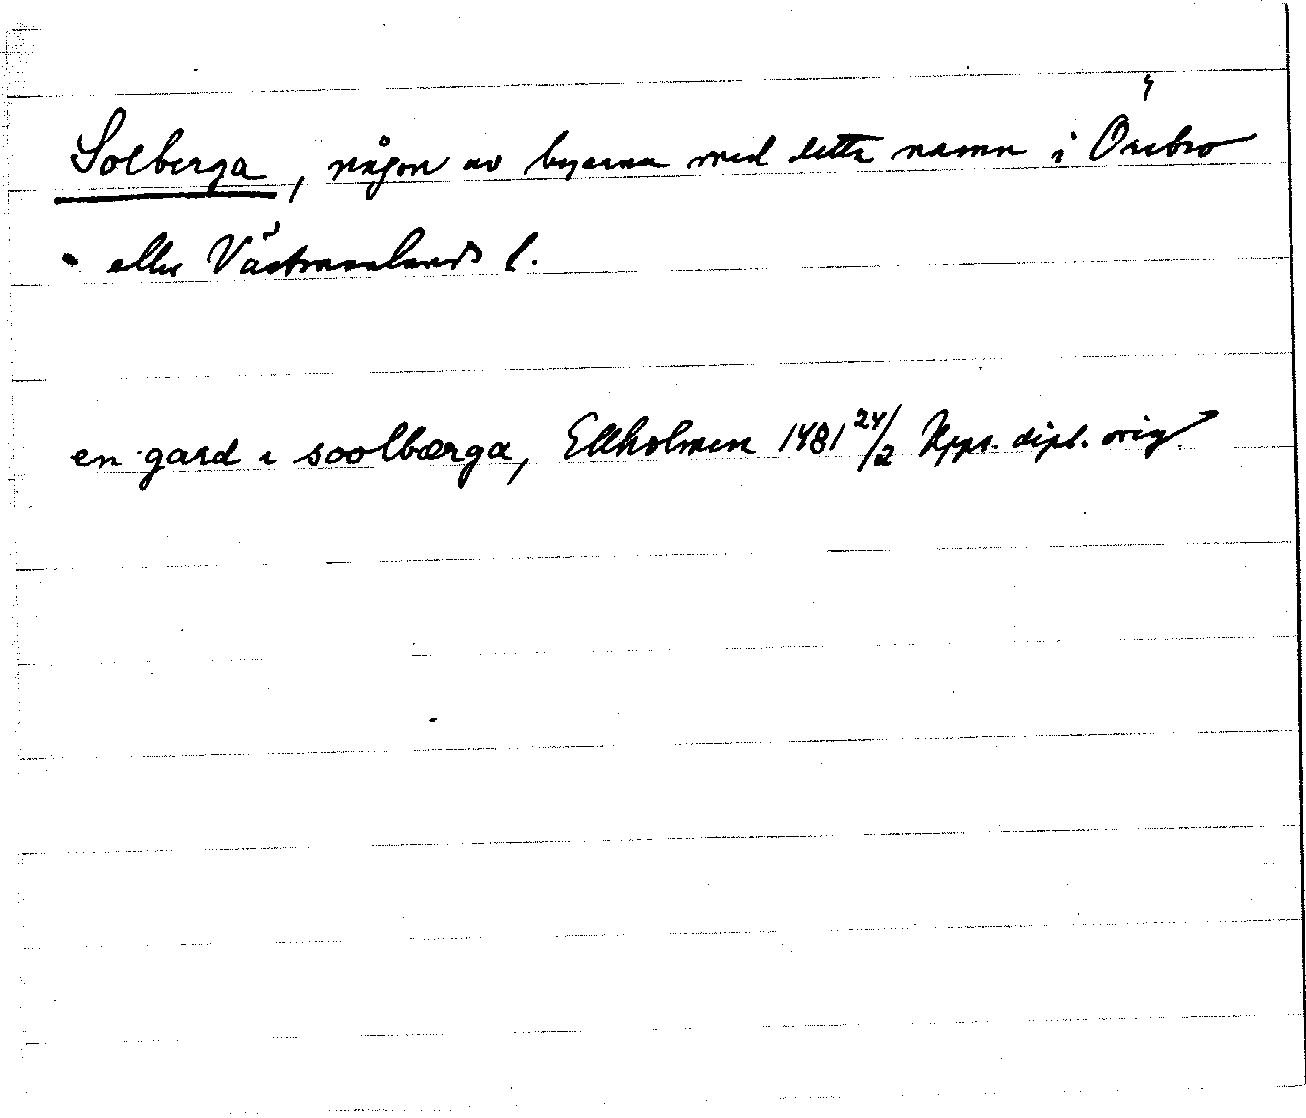 Solberga, någon av byarna med detta namn i Örebro
eller Västmanlands l.
en gard i soolbærga, Ekholmen 1481 24/2 Upps. dipl. orig.